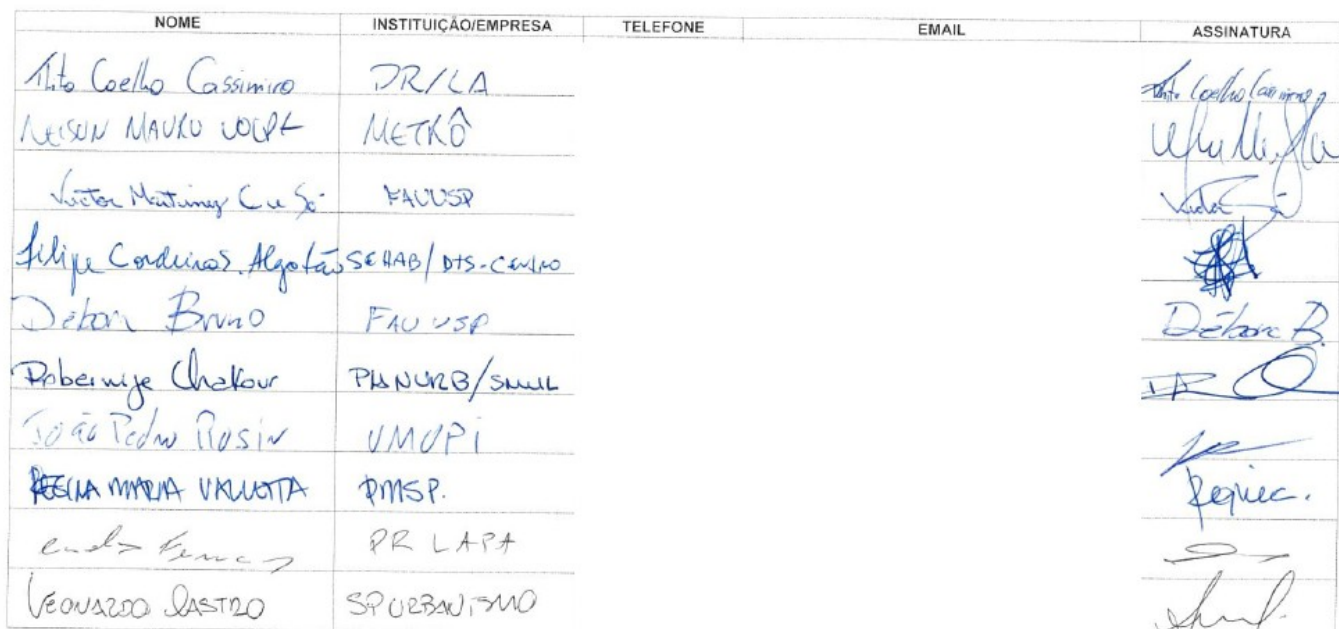 NOME INSTITUIÇÃO/EMPRESA TELEFONE EMAIL ASSINATURA
Coelho Cassimiro DR/LA Coelho Cassimiro
NELSON MAURO VOLPE METRÔ
Victor Martinez FAUUSP Victor Sá
Filipe Cordeiro S. Algatão SEHAB/DTS-CENTRO
Débora Bruno FAU USP Débora B.
Chakour PLANURB/SMUL
João Pedro Rosin UMUPI
REGINA MARIA VALLOTTA PMSP. Regina.
PR LAPA
LEONARDO CASTRO SPURBANISMO